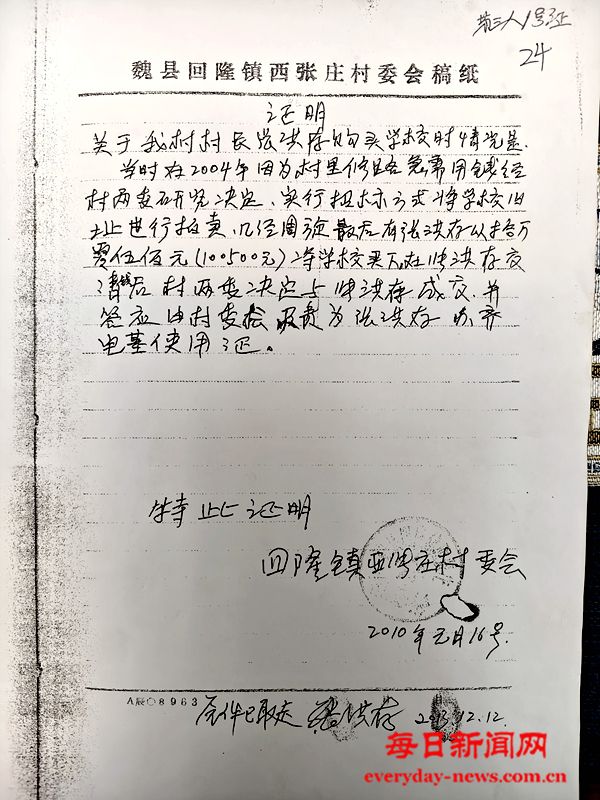 第三人1号证
24
魏县回隆镇西张庄村委会稿纸
证明
关于我村村民张洪存购买学校时情况是
当时在2004年因为村里修路急需用钱经
村两委研究决定，实行投标方式将学校旧
址进行拍卖，几经周旋最后有张洪存以拾万
零伍佰元(100500元)将学校买下在张洪存交
清钱后村两委决定与张洪存成交，并
答应由村委会负责为张洪存办齐
宅基使用证。
特此证明
回隆镇西张庄村委会
2010年元月16号.
A辰〇8963
原件已取走 张洪存 2013.12.12.
每日新闻网
everyday-news.com.cn